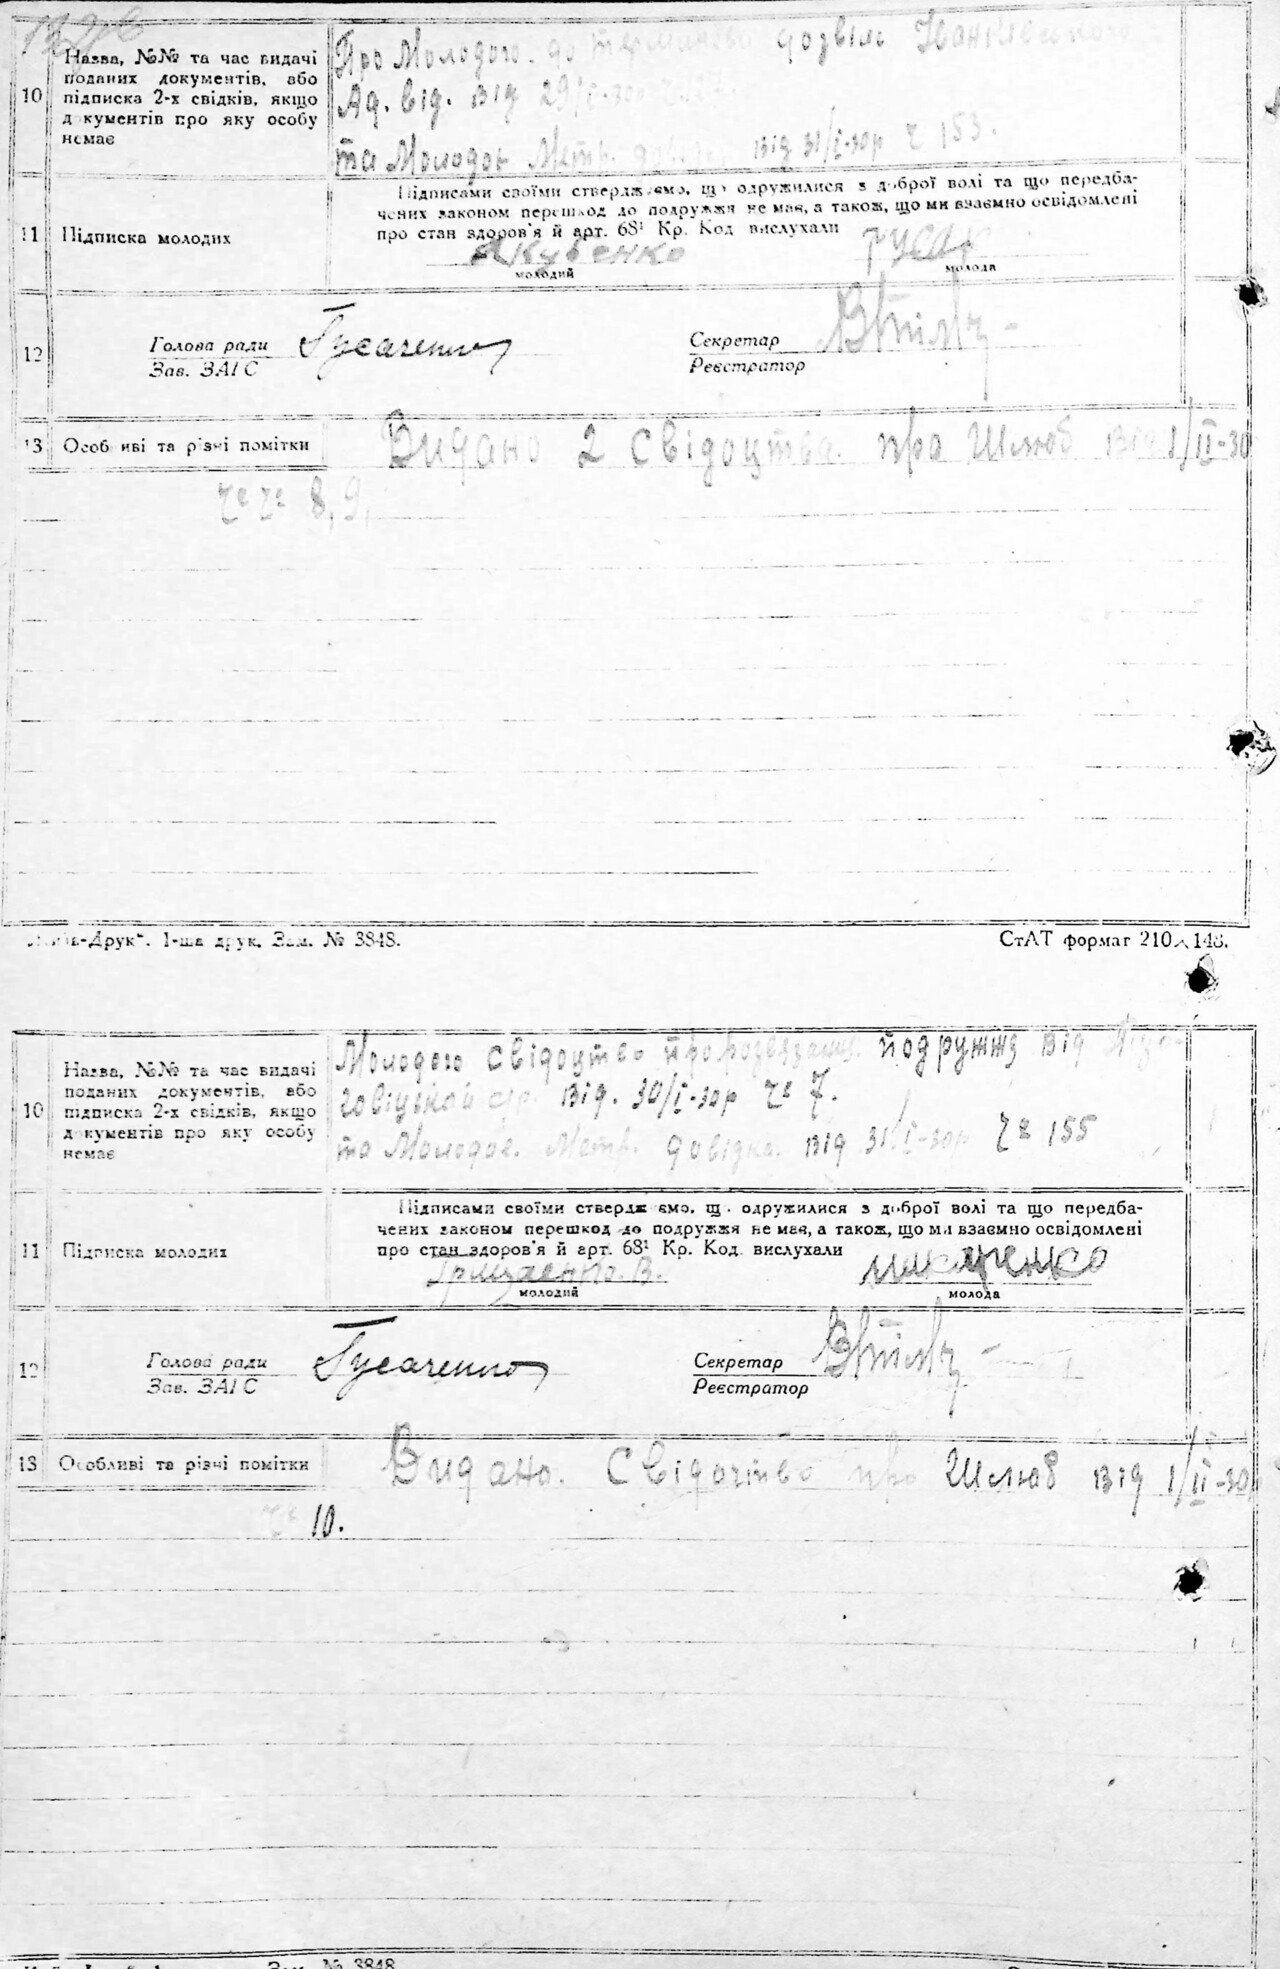 10
Назва, №№ та час видачі
поданих документів, або
підписка 2-х свідків, якщо
д кументів про яку особу
немає
Про Молодого. до дозвіл Іванківського
Ад. від. від 29/I-30р
та Молодої Метр. від 31/I-30р ч 153.
11
Підписка молодих
Підписами своїми стверджуємо, що одружилися з доброї волі та що передба-
чених законом перешкод до подружжя не має, а також, що ми взаємно освідомлені
про стан здоров'я й арт. 68¹ Кр. Код вислухали
Якубенко
русак
молодий
молода
12
Голова ради
Гусаченко
Секретар
Зав. ЗАГС
Реєстратор
13
Особ иві та різні помітки
Видано 2 свідоцтва. про Шлюб від 1/II-30
чº чº 8, 9,
-Друк". 1-ша друк. Зам. № 3848.
СтАТ формат 210×148.
10
Назва, №№ та час видачі
поданих документів, або
підписка 2-х свідків, якщо
д кументів про яку особу
немає
Молодого свідоцтво про подружжя від
від. 30/I-30р чº 7.
та Молодої. Метр. довідка. від 31/I-30р чº 155
11
Підписка молодих
Підписами своїми стверджуємо, що одружилися з доброї волі та що передба-
чених законом перешкод до подружжя не має, а також, що ми взаємно освідомлені
про стан здоров'я й арт. 68¹ Кр. Код. вислухали
Грицаенко. В.
макаренко
молодий
молода
12
Голова ради
Гусаченко
Секретар
Зав. ЗАГС
Реєстратор
13
Особливі та різні помітки
Видано. Свідочтво про Шлюб від 1/II-30р
чº 10.
Зам. № 3848